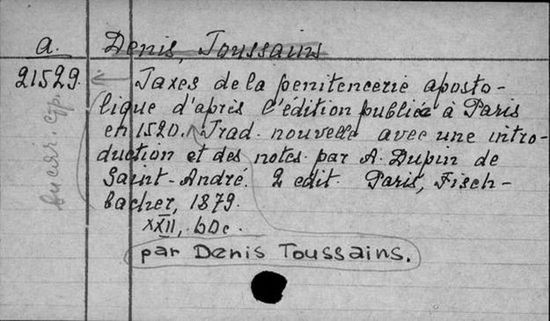 a. Denis, Toussains
21529. Taxes de la penitencerie aposto-
lique d'après l'édition publiée à Paris
en 1520. Trad. nouvelle avec une intro-
duction et des notes par A. Dupin de
Saint-André. 2 edit. Paris, Fisch-
bacher, 1879.
XXII, 60 c.
par Denis Toussains.